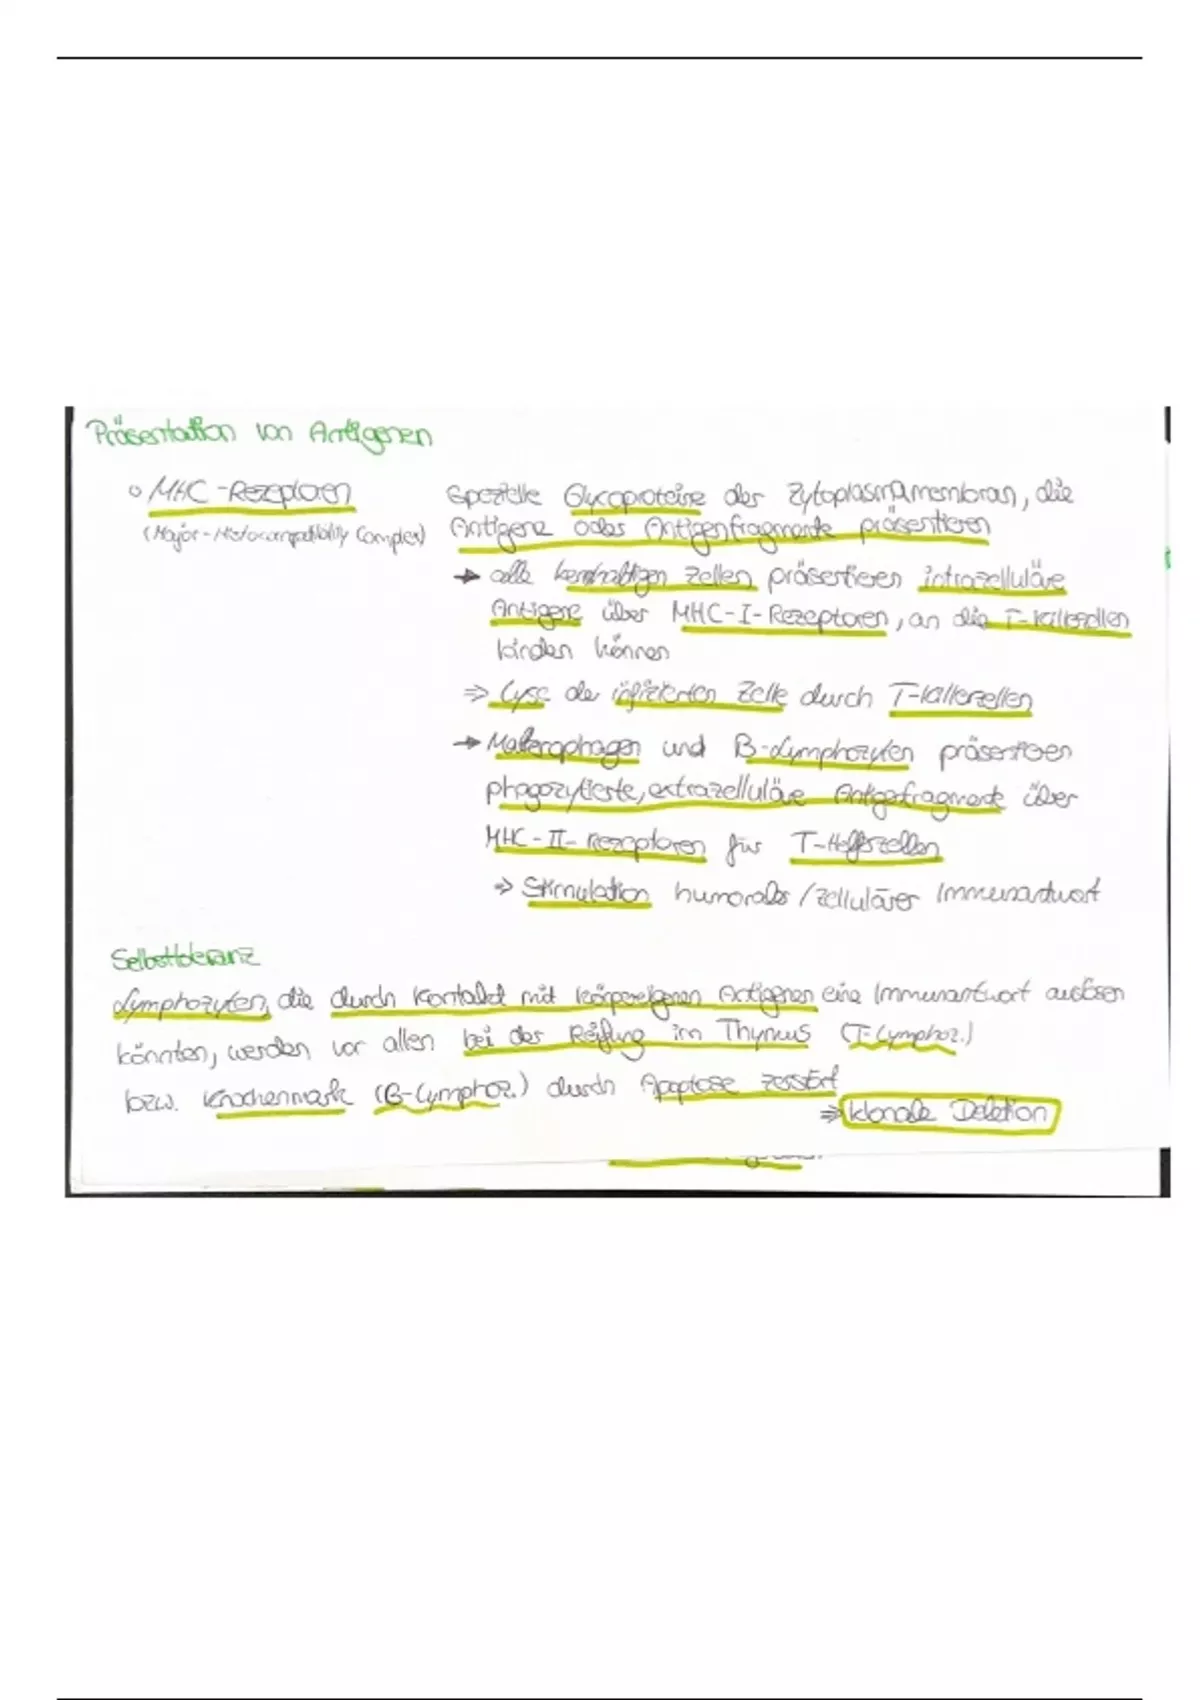 Präsentation von Antigenen
○ MHC-Rezeptoren
(Major-Histocompatibility Complex)
spezielle Glycoproteine der Zytoplasmamembran, die
Antigene oder Antigenfragmente präsentieren
→ alle kernhaltigen Zellen präsentieren intrazelluläre
Antigene über MHC-I-Rezeptoren, an die T-Killerzellen
binden können
⇒ Lyse der infizierten Zelle durch T-Killerzellen
→ Makrophagen und B-Lymphozyten präsentieren
phagozytierte, extrazelluläre Antigenfragmente über
MHC-II-Rezeptoren für T-Helferzellen
⇒ Stimulation humoraler/zellulärer Immunantwort
Selbsttoleranz
Lymphozyten, die durch Kontakt mit körpereigenen Antigenen eine Immunantwort auslösen
könnten, werden vor allen bei der Reifung im Thymus (T-Lymphoz.)
bzw. Knochenmark (B-Lymphoz.) durch Apoptose zerstört
⇒ klonale Deletion